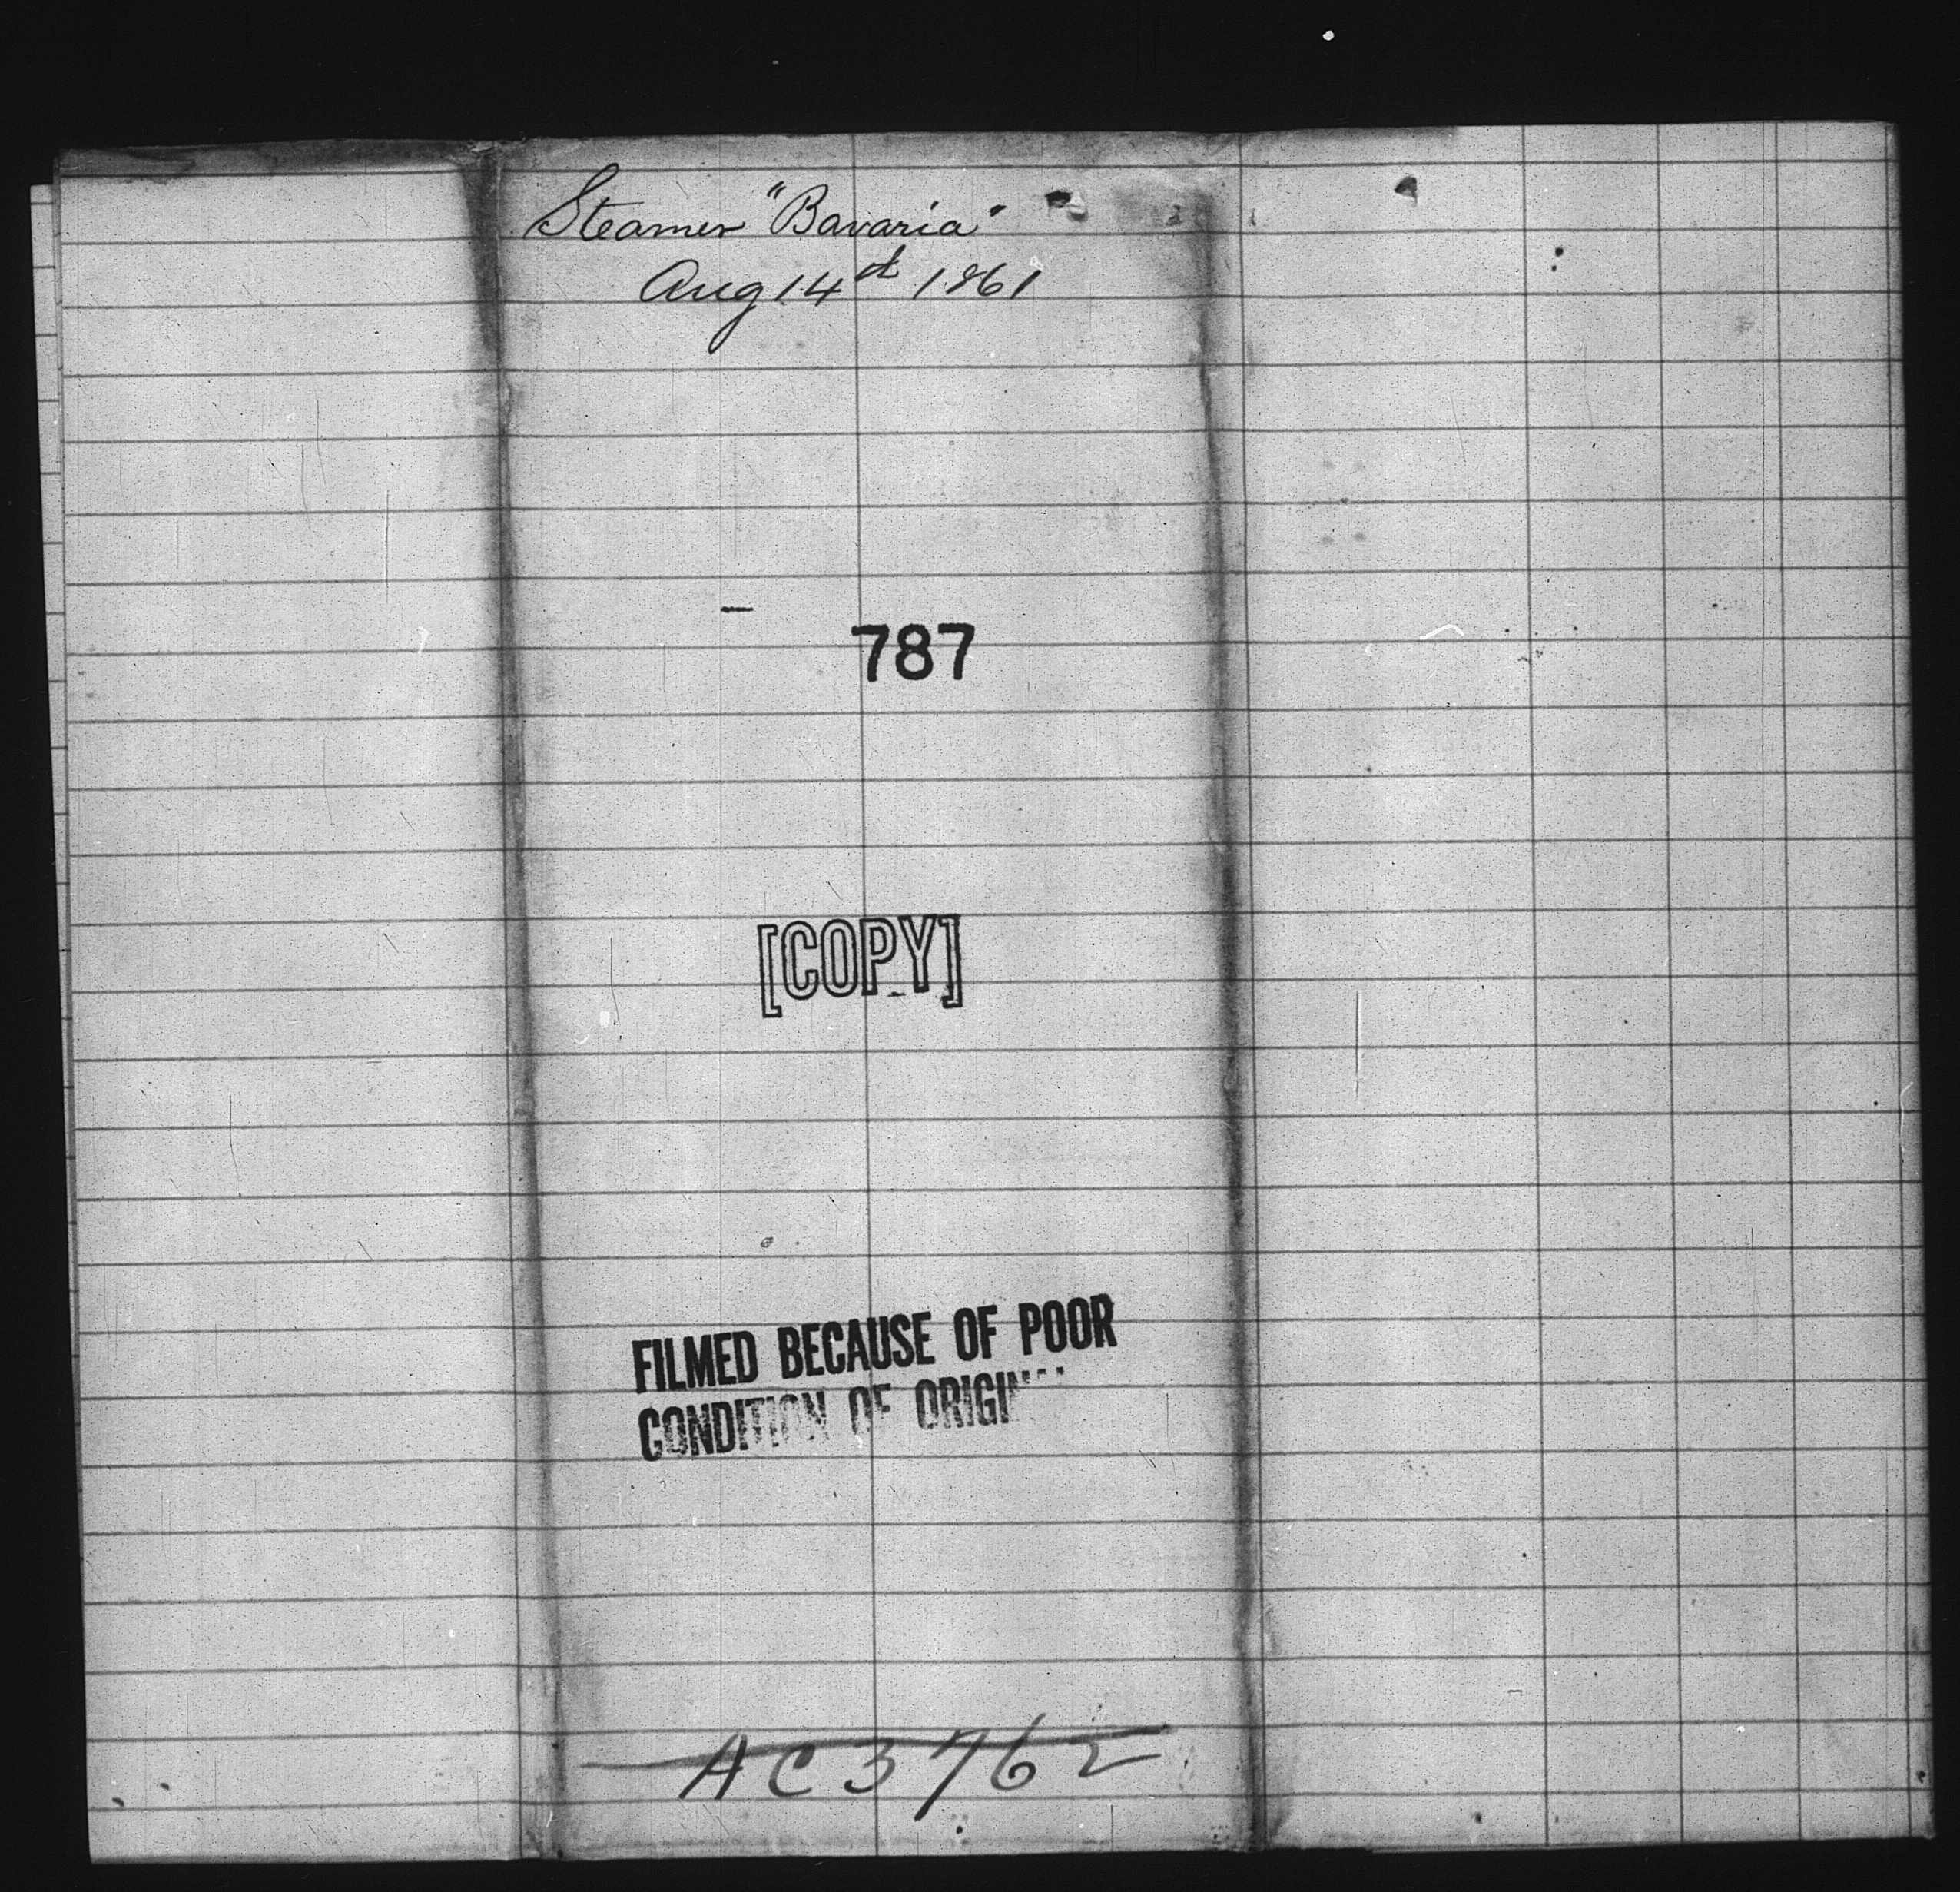 Steamer "Bavaria"
Aug 14th 1861
787
[COPY]
FILMED BECAUSE OF POOR
CONDITION OF ORIGINAL
AC 3762